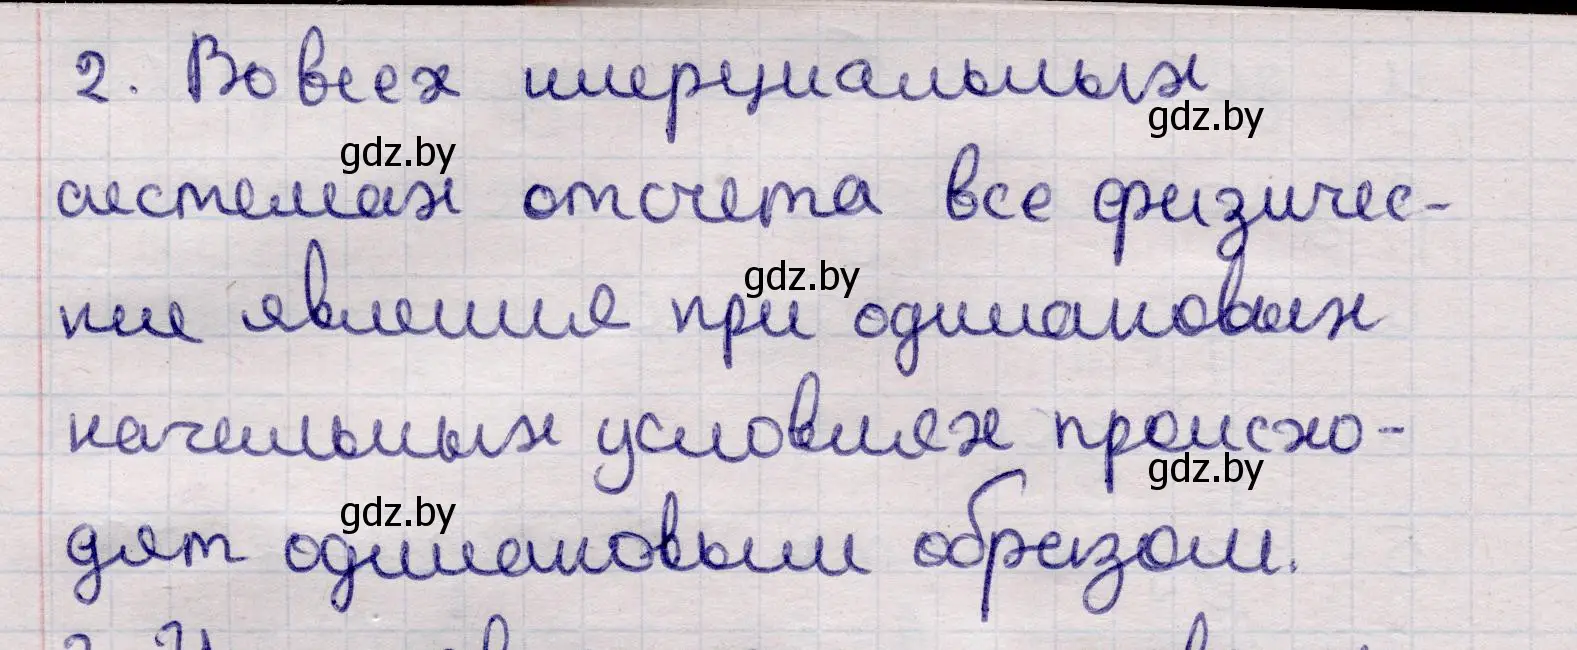 2. Во всех инерциальных
gdz.by
gdz.by
системах отсчета все физичес-
gdz.by
кие явления при одинаковых
начальных условиях происхо-
gdz.by
gdz.by
дят одинаковым образом.